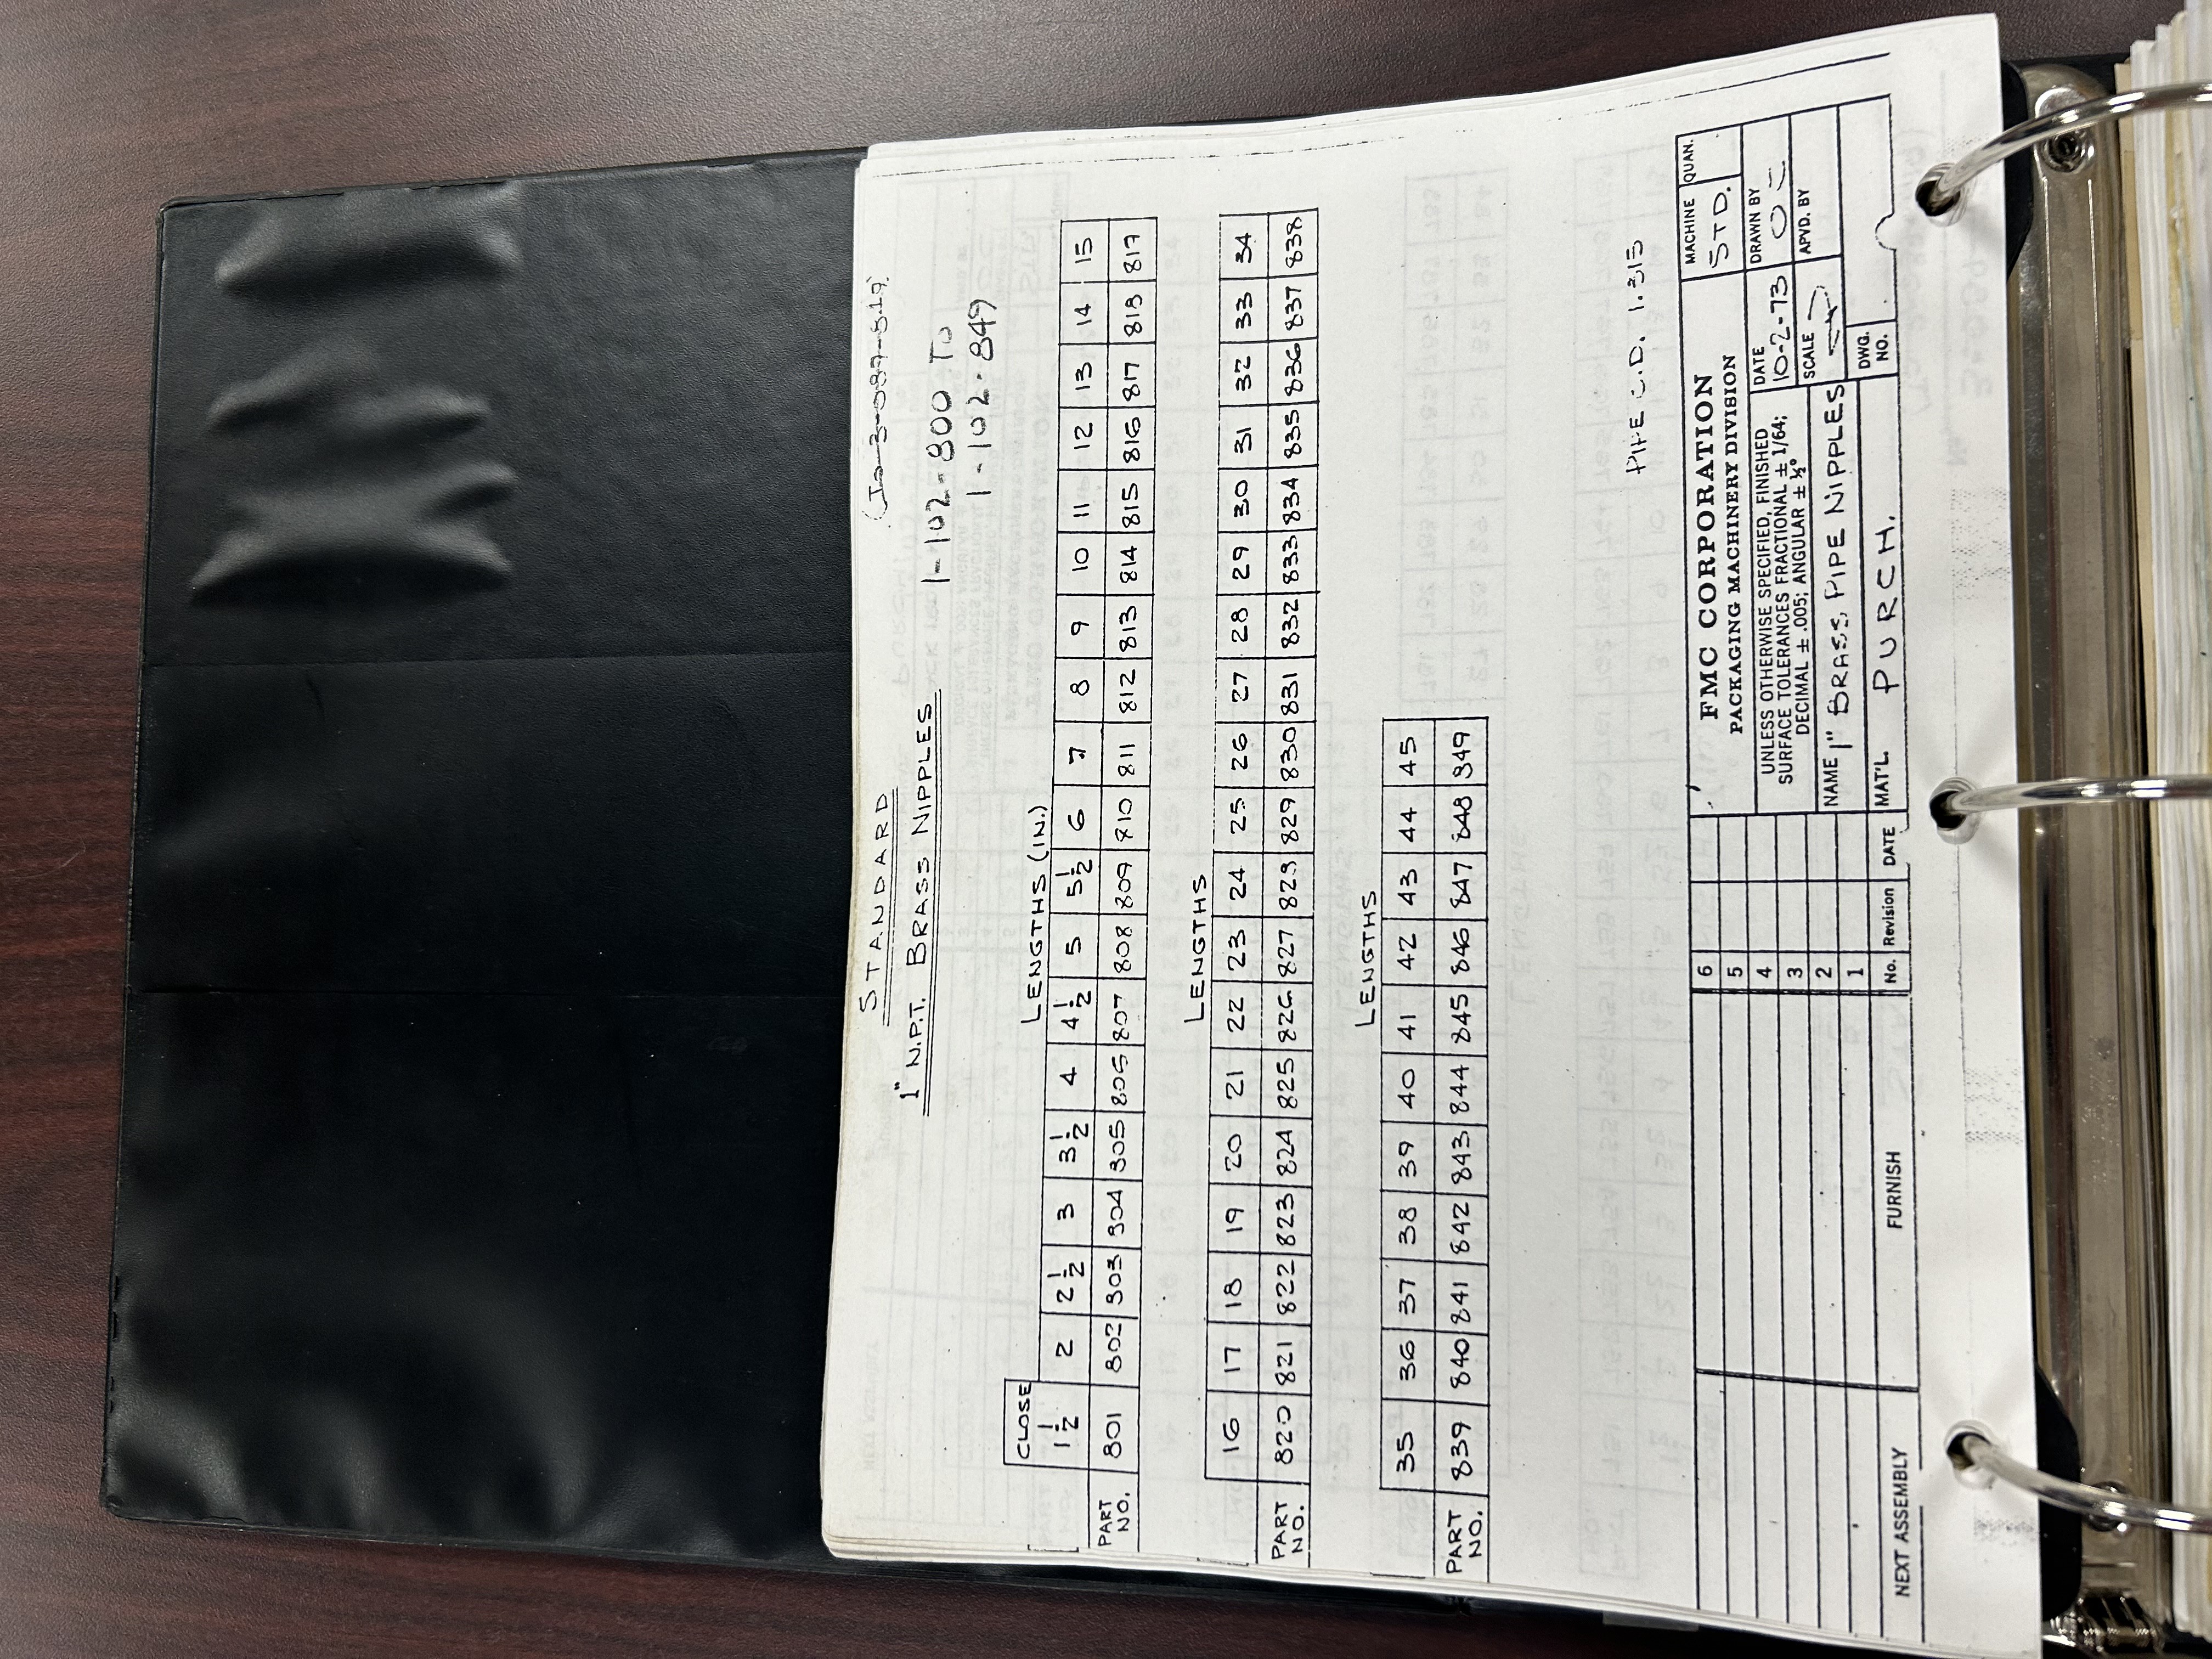 STANDARD
1" N.P.T. BRASS NIPPLES
1-102-800 TO
1-102-849
CLOSE
LENGTHS (IN.)
1 1/2 2 2 1/2 3 3 1/2 4 4 1/2 5 5 1/2 6 7 8 9 10 11 12 13 14 15
PART NO. 801 802 803 804 805 806 807 808 809 810 811 812 813 814 815 816 817 818 819
LENGTHS
16 17 18 19 20 21 22 23 24 25 26 27 28 29 30 31 32 33 34
PART NO. 820 821 822 823 824 825 826 827 828 829 830 831 832 833 834 835 836 837 838
LENGTHS
35 36 37 38 39 40 41 42 43 44 45
PART NO. 839 840 841 842 843 844 845 846 847 848 849
PIPE O.D. 1.315
6
5
4
3
2
1
NEXT ASSEMBLY
FURNISH
No. Revision DATE
FMC CORPORATION
PACKAGING MACHINERY DIVISION
MACHINE
STD.
QUAN.
UNLESS OTHERWISE SPECIFIED, FINISHED
SURFACE TOLERANCES FRACTIONAL ± 1/64;
DECIMAL ± .005; ANGULAR ± ½°
DATE
10-2-73
DRAWN BY
SCALE
APVD. BY
NAME 1" BRASS PIPE NIPPLES
MAT'L. PURCH.
DWG.
NO.